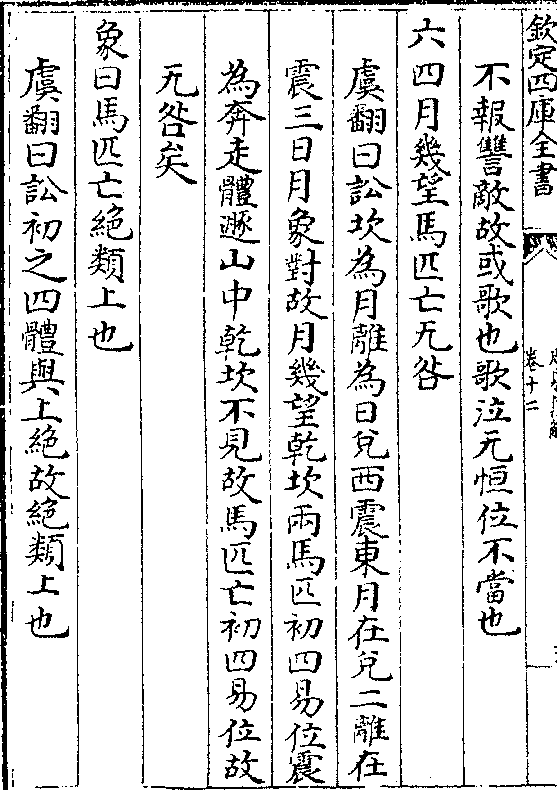 欽定四庫全書
卷十二
不報讐敵故或歌也歌泣无恒位不當也
六四月幾望馬匹亡无咎
虞翻曰訟坎為月離為日兌西震東月在兌二離在
震三日月象對故月幾望乾坎兩馬匹初四易位震
為奔走體遯山中乾坎不見故馬匹亡初四易位故
无咎矣
象曰馬匹亡絶類上也
虞翻曰訟初之四體與上絶故絶類上也